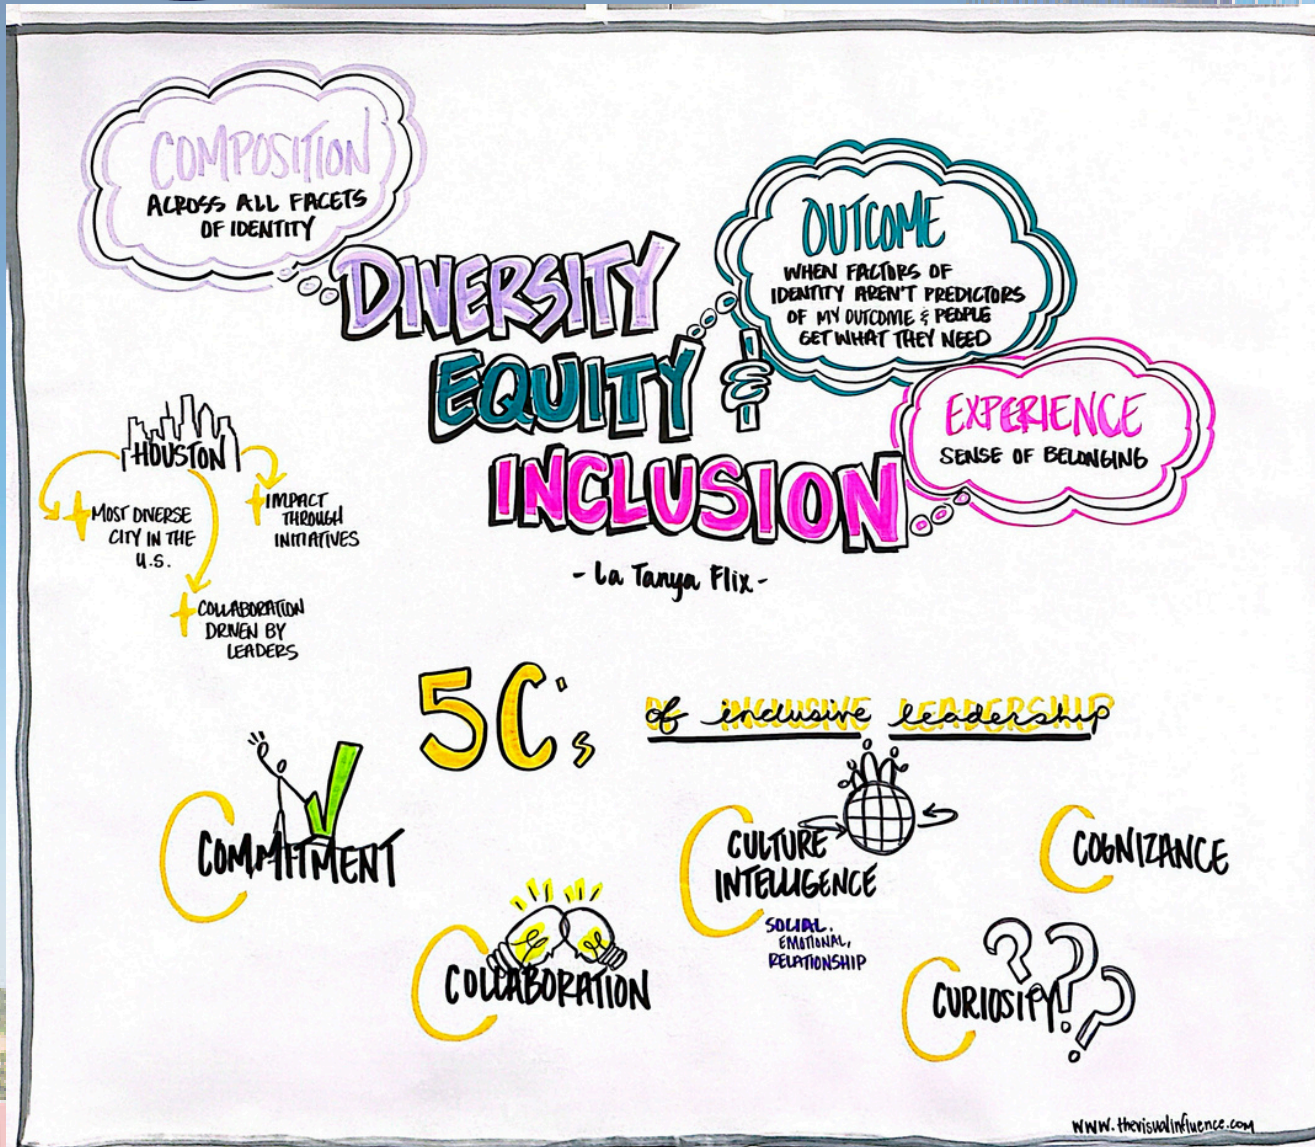 COMPOSITION
ACROSS ALL FACETS
OF IDENTITY
DIVERSITY
EQUITY &
INCLUSION
- La Tanya Flix -
OUTCOME
WHEN FACTORS OF
IDENTITY AREN'T PREDICTORS
OF MY OUTCOME & PEOPLE
GET WHAT THEY NEED
EXPERIENCE
SENSE OF BELONGING
HOUSTON
+ MOST DIVERSE
CITY IN THE
U.S.
+ COLLABORATION
DRIVEN BY
LEADERS
+ IMPACT
THROUGH
INITIATIVES
5C's of inclusive leadership
COMMITMENT
COLLABORATION
CULTURE
INTELLIGENCE
SOCIAL,
EMOTIONAL,
RELATIONSHIP
COGNIZANCE
CURIOSITY
???
www.thevisualinfluence.com